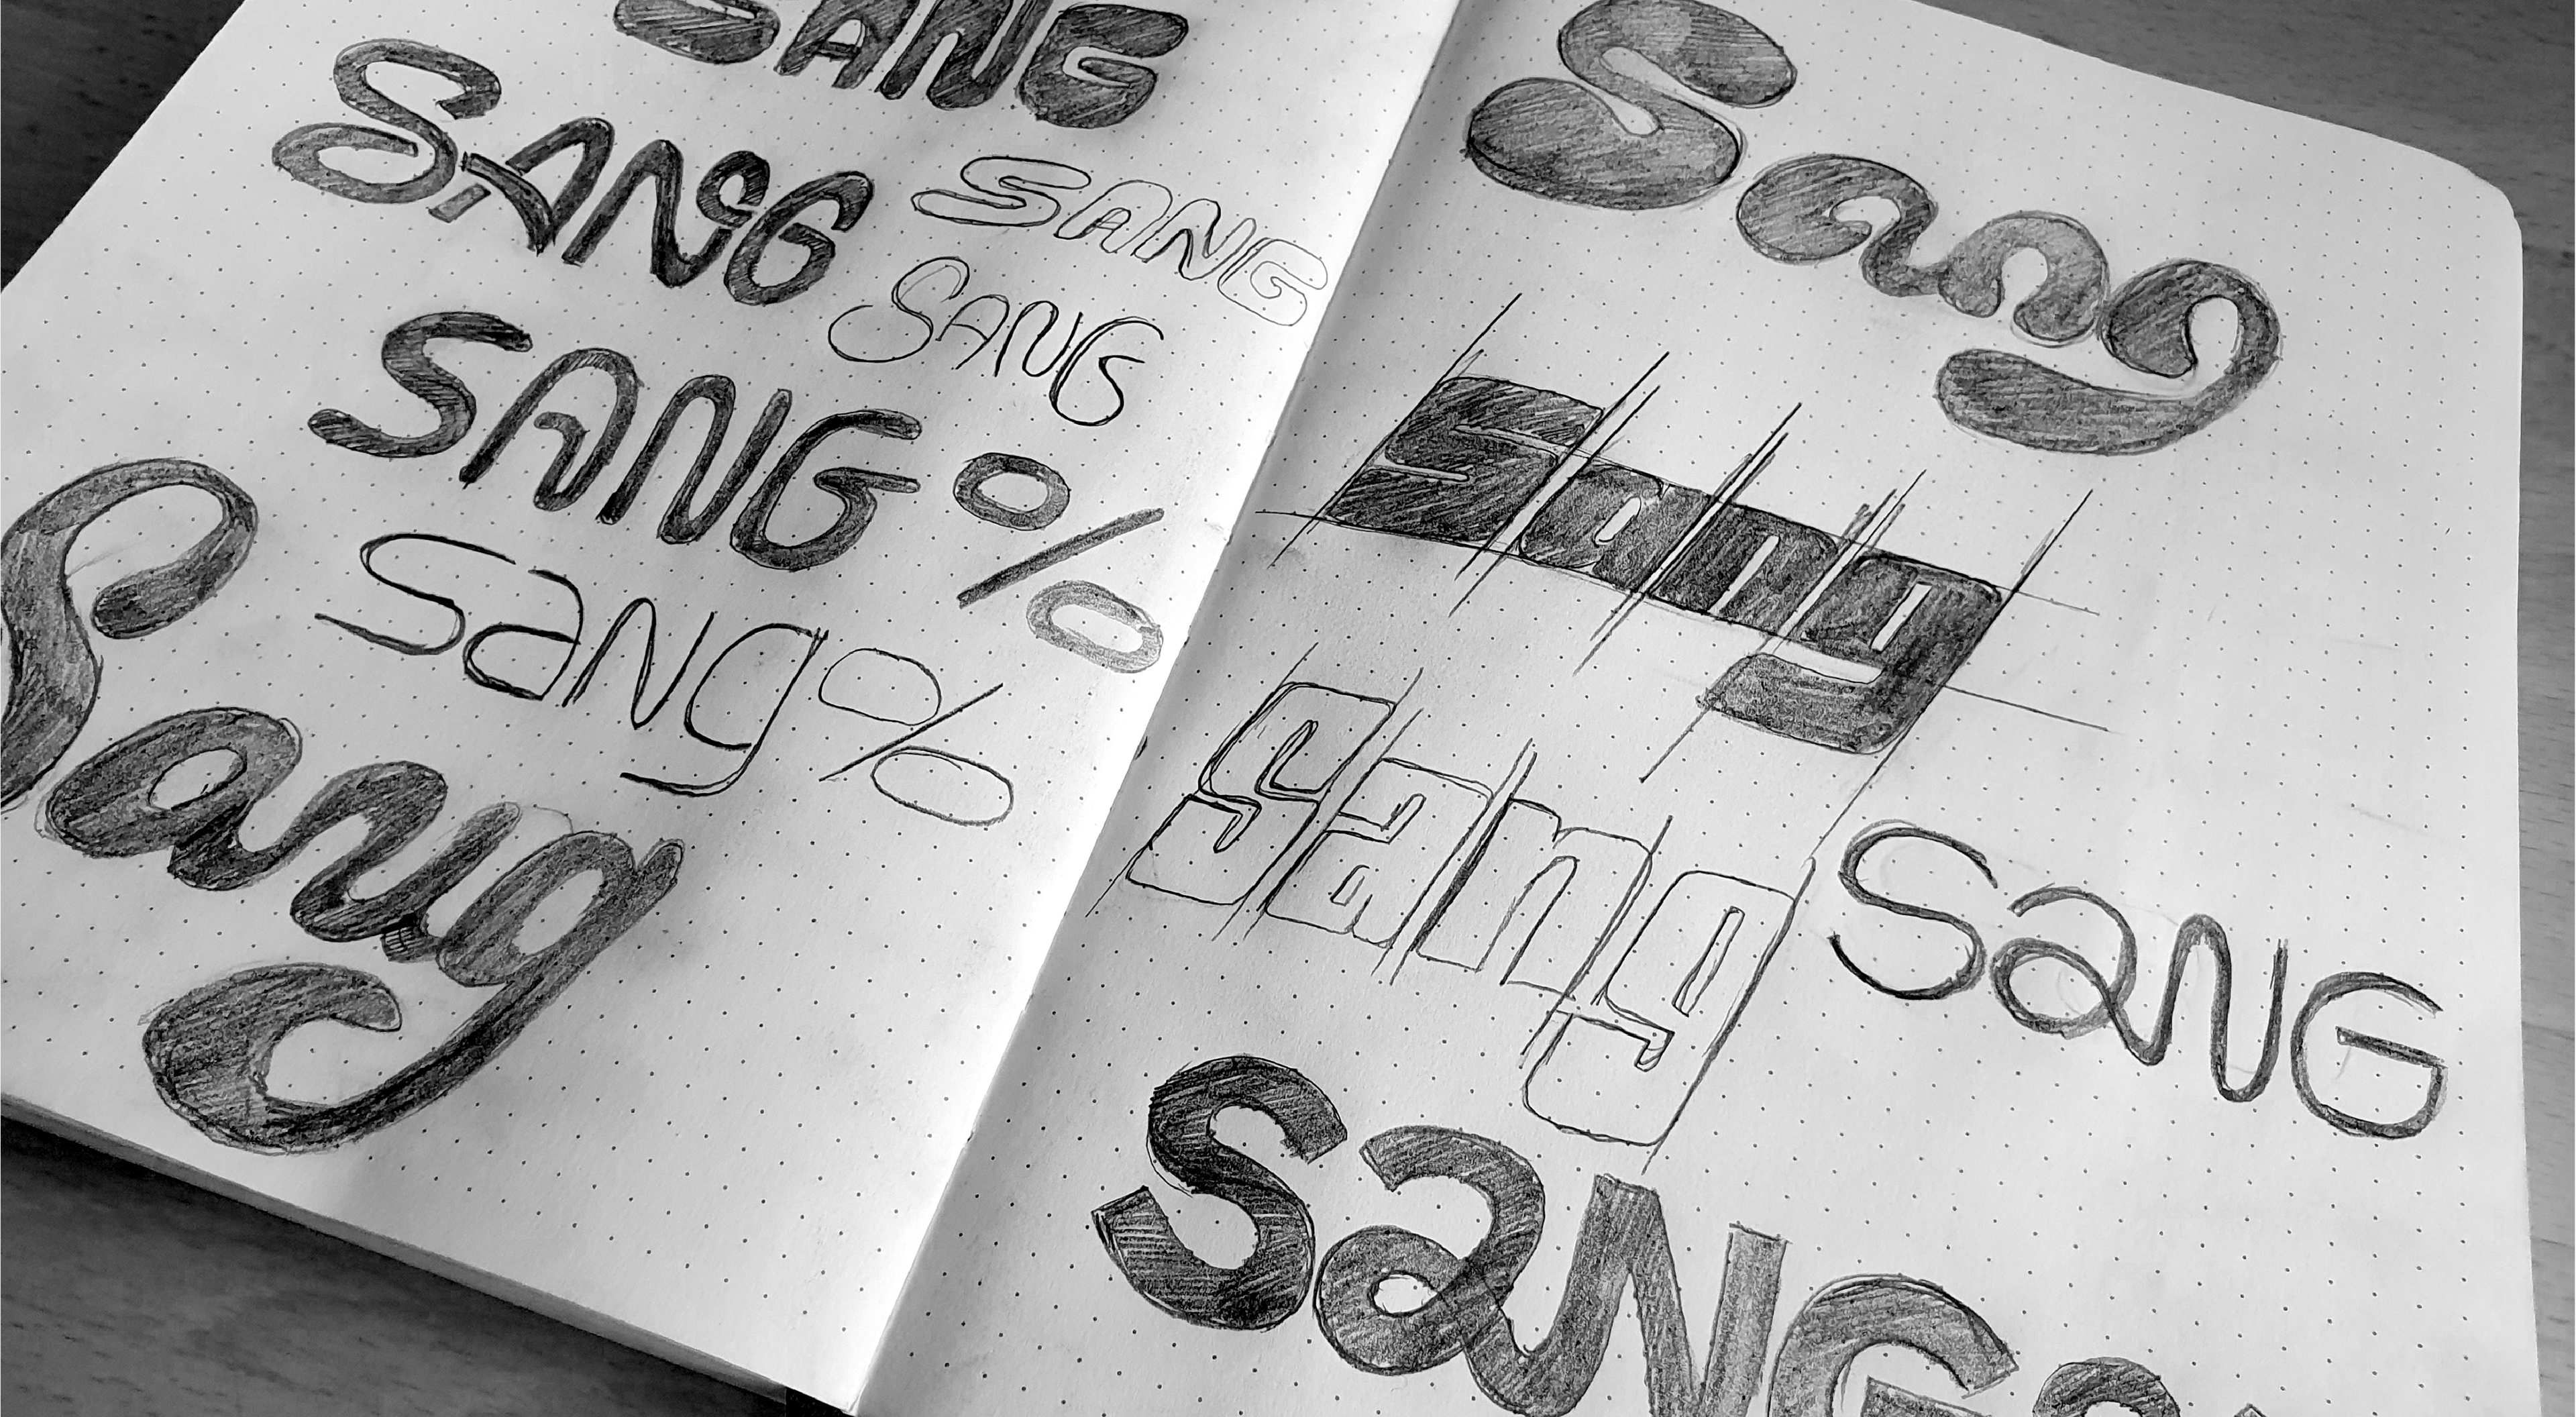 SANG
SANG
SANG
SANG
SANG%
Sang%
Sang
Sang
Sang
Sang
SaNG
SaNG